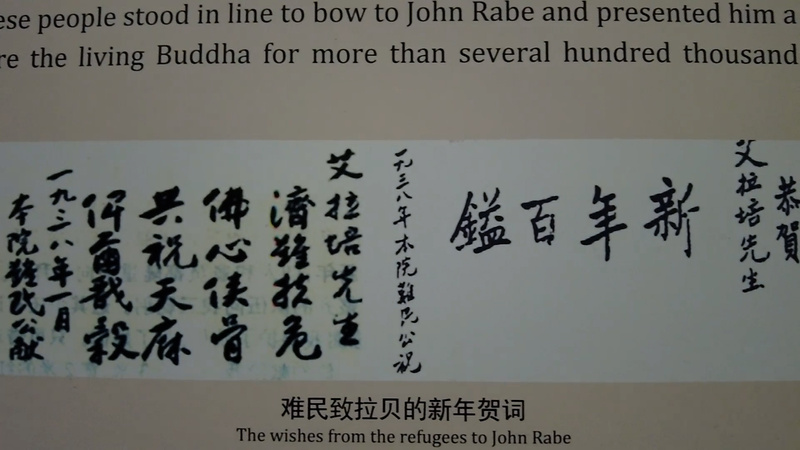 ese people stood in line to bow to John Rabe and presented him a
re the living Buddha for more than several hundred thousand
恭賀
艾拉培先生
新年百鎰
一九三八年本院難民公祝
艾拉培先生
濟難扶危
佛心俠骨
共祝天庥
俾爾戩穀
一九三八年一月
本院難民公献
难民致拉贝的新年贺词
The wishes from the refugees to John Rabe